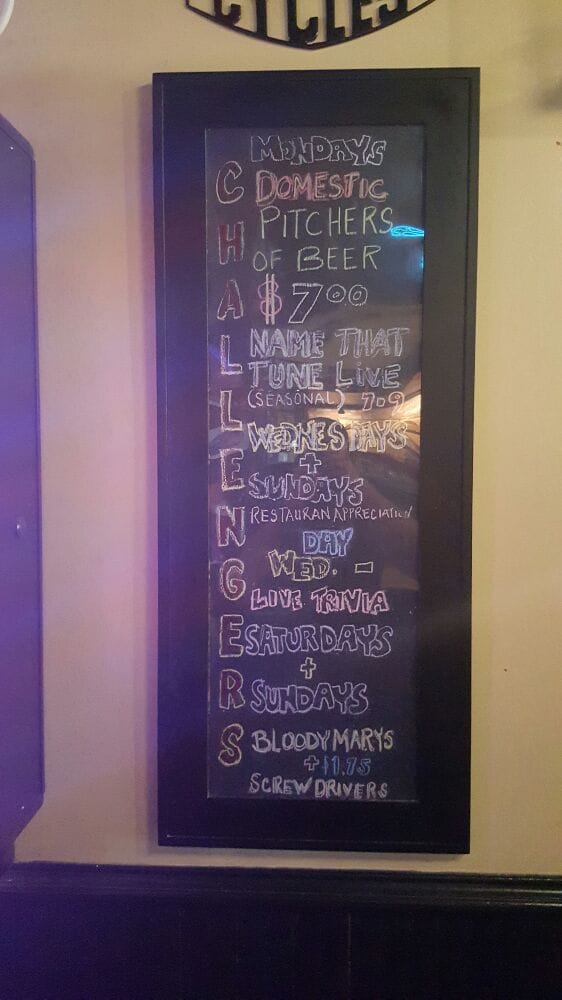 CYCLES
CHALLENGERS
MONDAYS
DOMESTIC
PITCHERS
OF BEER
$7.00
NAME THAT
TUNE LIVE
(SEASONAL) 7-9
WEDNESDAYS
+
SUNDAYS
RESTAURAN APPRECIATION
DAY
WED. -
LIVE TRIVIA
SATURDAYS
+
SUNDAYS
BLOODY MARYS
+ $1.75
SCREW DRIVERS